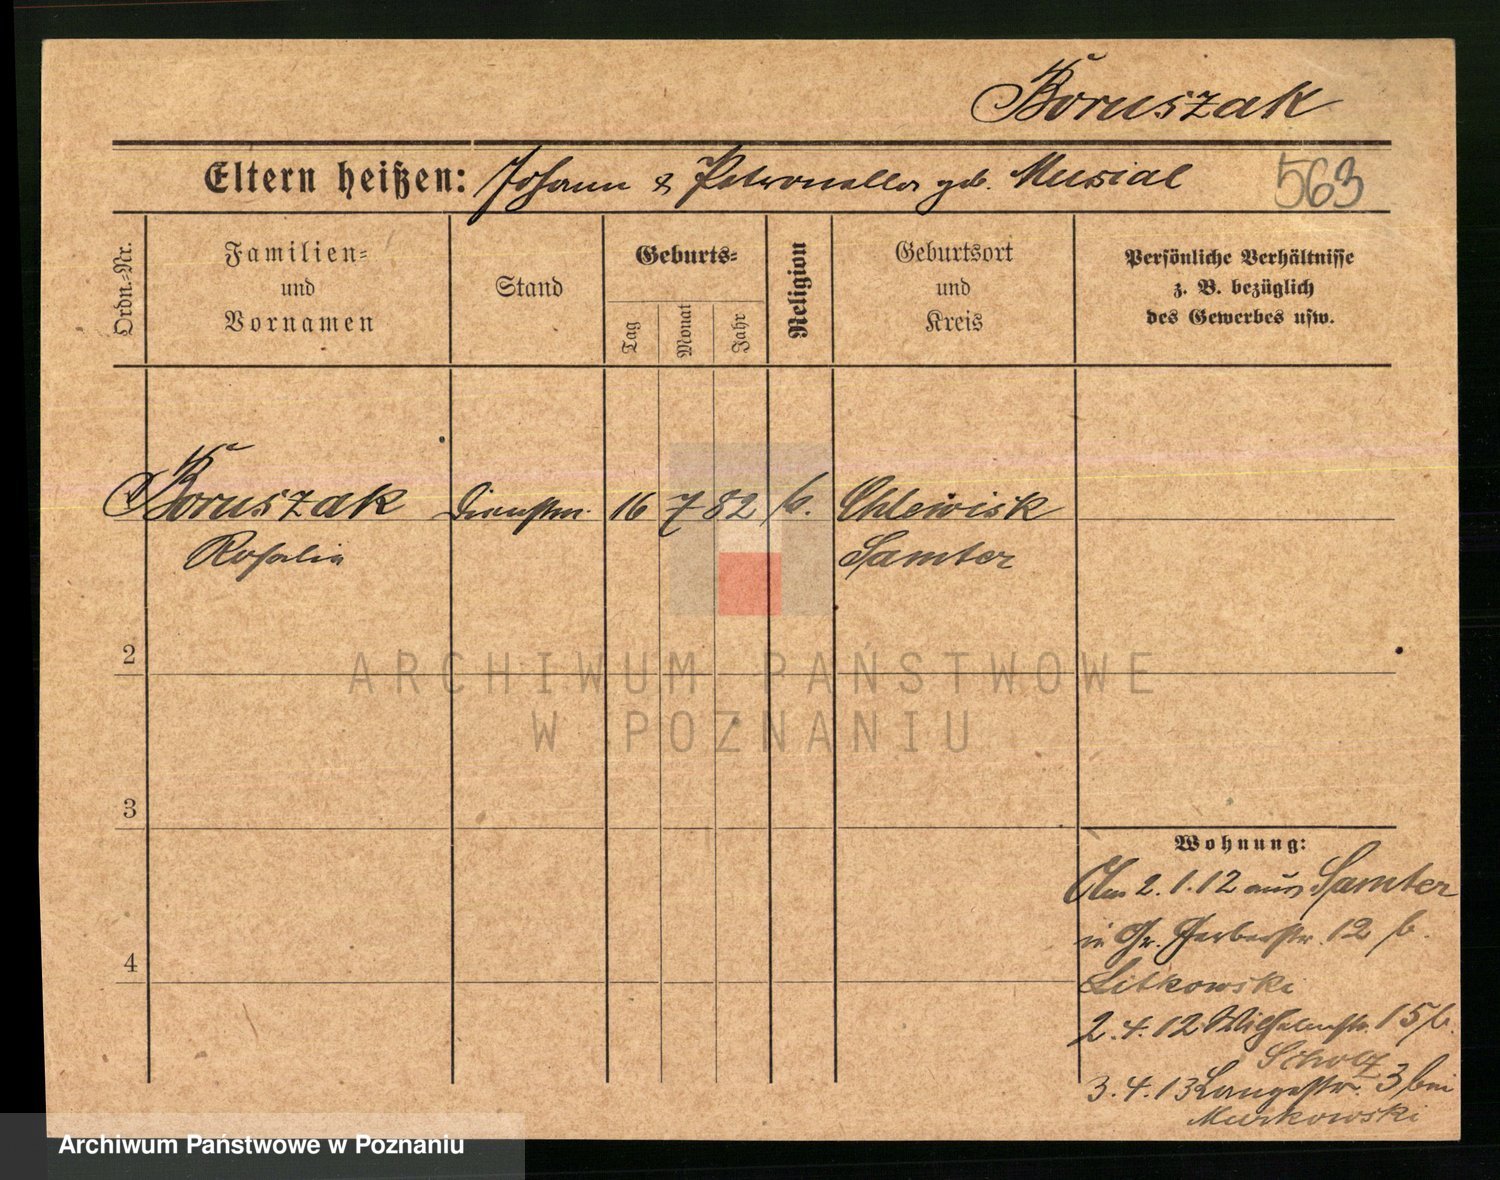 Boruszak
Eltern heißen: Johann & Petronella geb. Musial 563
Ordn.-Nr.
Familien-
und
Vornamen
Stand
Geburts-
Tag
Monat
Jahr
Religion
Geburtsort
und
Kreis
Persönliche Verhältnisse
z. B. bezüglich
des Gewerbes usw.
Boruszak Dienstm. 16 7 82 k. Chlewisk
Rosalia Samter
2
3
4
Wohnung:
Am 2.1.12 aus Samter
in Gr. Gerberstr. 12 b.
Litkowski
2.4.12 Wilhelmstr. 15 b.
Scholz
3.4.13 Langestr. 3 bei
Murkowski
ARCHIWUM PAŃSTWOWE
W POZNANIU
Archiwum Państwowe w Poznaniu